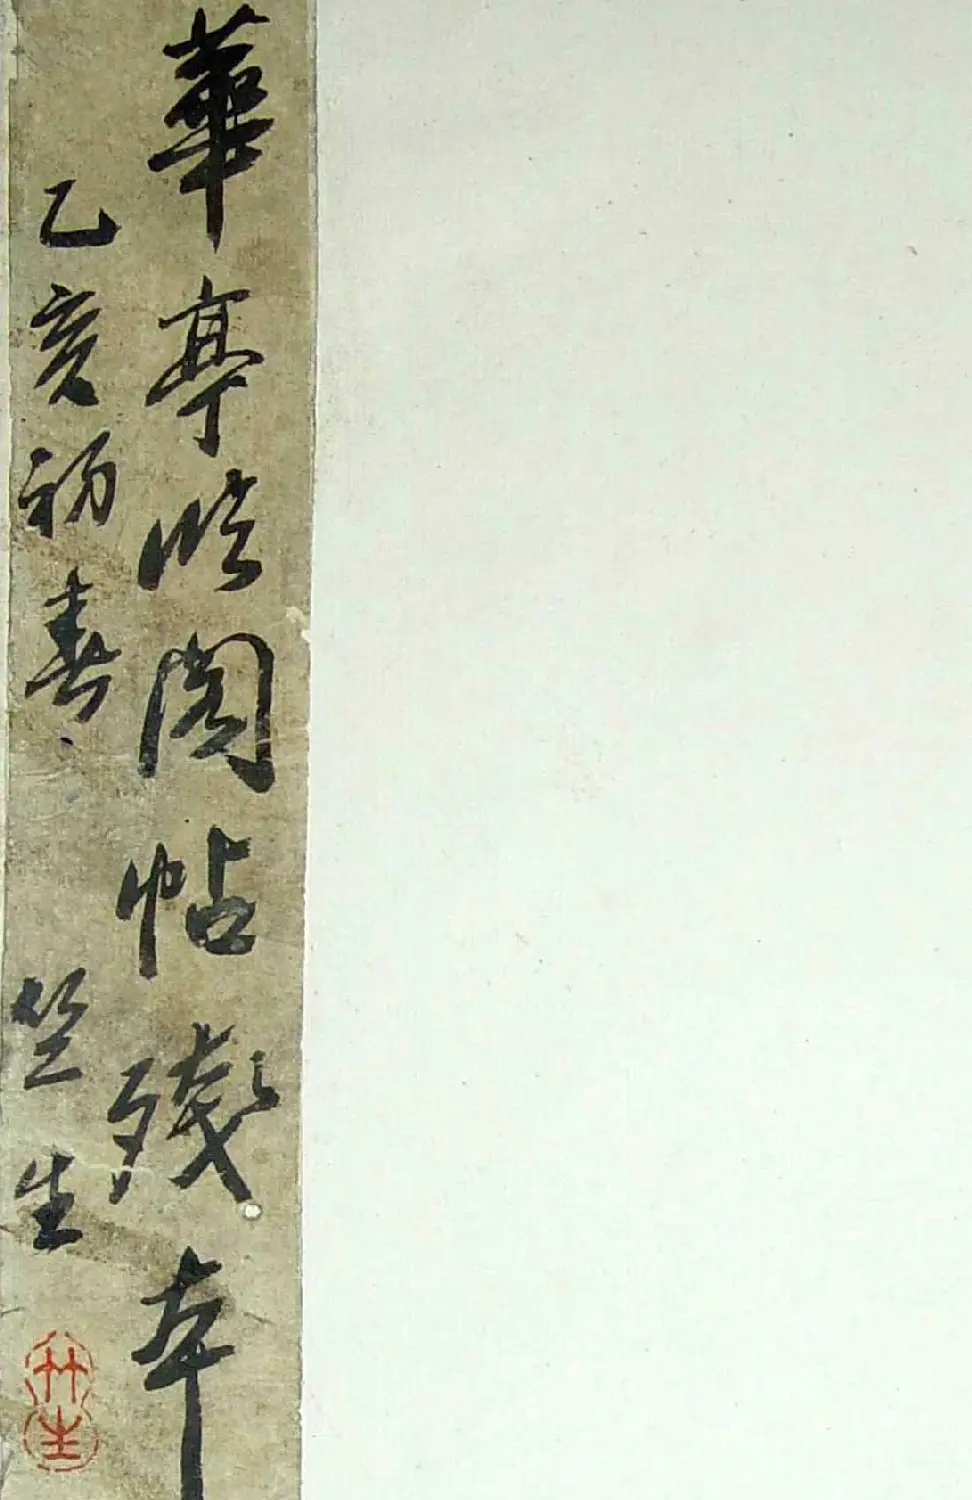 華亭臨閣帖殘本
乙亥初春 竺生
竹生